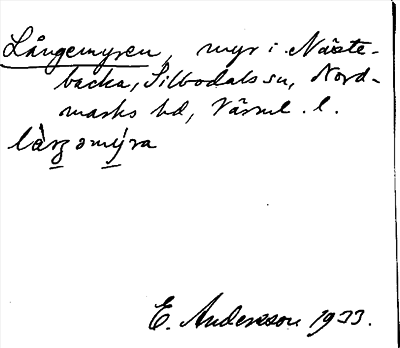 Långemyren, myr i Näste-
backa, Silbodals sn, Nord-
marks hd, Värml. l.
E. Andersson 1933.